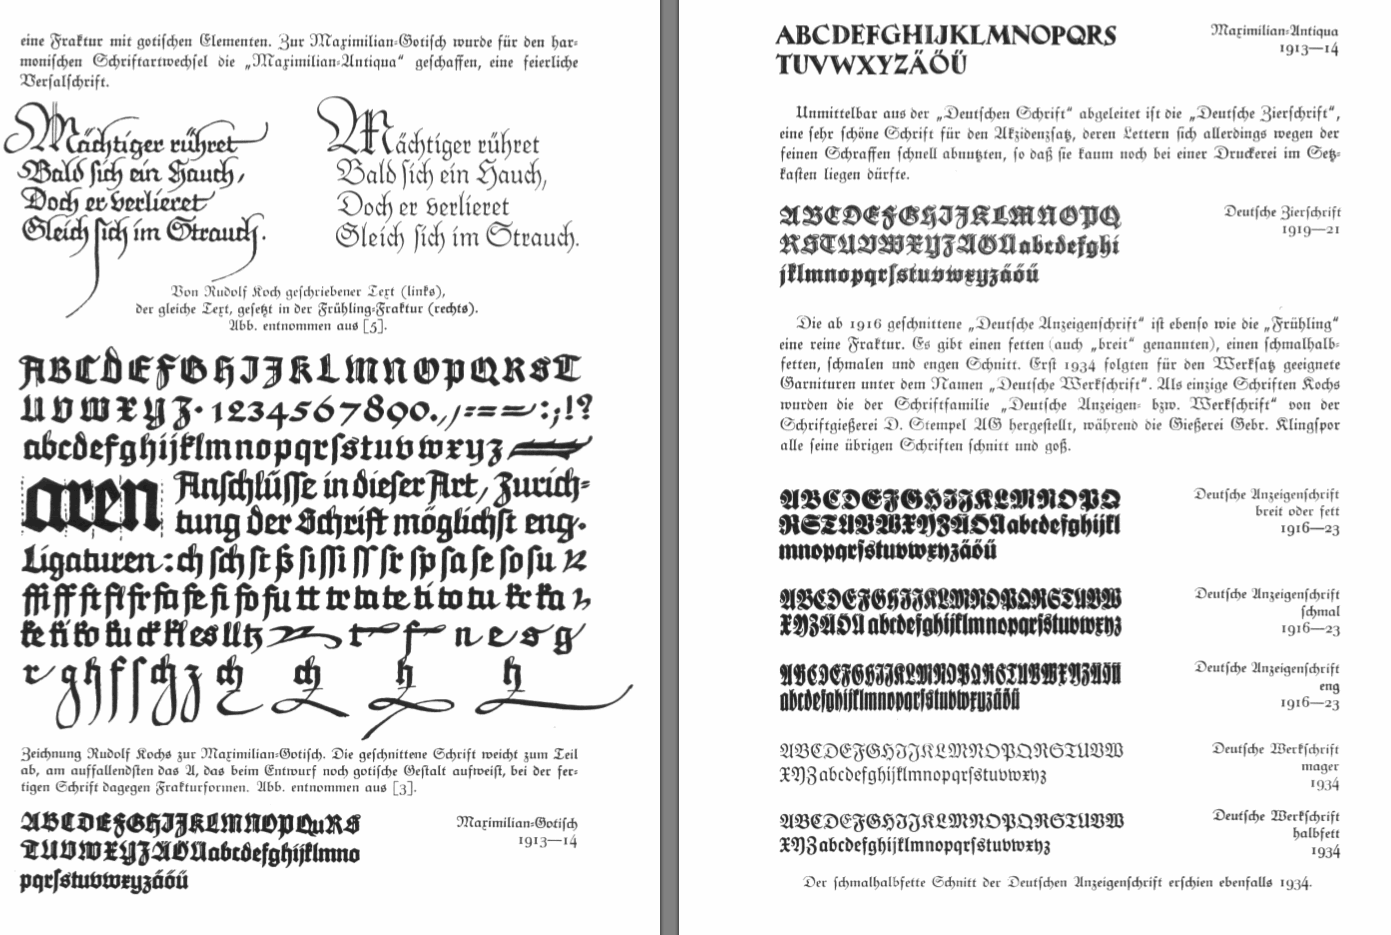 eine Fraktur mit gotiſchen Elementen. Zur Maximilian-Gotiſch wurde für den har-
moniſchen Schriftartwechſel die „Maximilian-Antiqua“ geſchaffen, eine feierliche
Verſalſchrift.
Mächtiger rühret
Bald ſich ein Hauch,
Doch er verlieret
Gleich ſich im Strauch.
Mächtiger rühret
Bald ſich ein Hauch,
Doch er verlieret
Gleich ſich im Strauch.
Von Rudolf Koch geſchriebener Text (links),
der gleiche Text, geſetzt in der Frühling-Fraktur (rechts).
Abb. entnommen aus [5].
ABCDEFGHIJKLMNOPQRST
UVWXYZ. 1234567890.,/-==:;!?
abcdefghijklmnopqrſstuvwxyz
aren Anſchlüſſe in dieſer Art, Zurich-
tung der Schrift möglichſt eng.
Ligaturen: ch ſch ſt ß ſi ſſi ſſ ſr ſp ſa ſe ſo ſu
ffi ff ft fl fr fa fe fi fo fu tt tr ta te ti to tu kr ka
ke ki ko ku ck kl es ll tz t f n e s g
r g h f ſ ch z ch ch h h
Zeichnung Rudolf Kochs zur Maximilian-Gotiſch. Die geſchnittene Schrift weicht zum Teil
ab, am auffallendſten das A, das beim Entwurf noch gotiſche Geſtalt aufweiſt, bei der fer-
tigen Schrift dagegen Frakturformen. Abb. entnommen aus [3].
ABCDEFGHIJKLMNOPQuRS
TUVWXYZÄÖÜabcdefghijklmno
pqrſstuvwxyzäöü
Maximilian-Gotiſch
1913—14
ABCDEFGHIJKLMNOPQRS
TUVWXYZÄÖÜ
Maximilian-Antiqua
1913—14
Unmittelbar aus der „Deutſchen Schrift“ abgeleitet iſt die „Deutſche Zierſchrift“,
eine ſehr ſchöne Schrift für den Akzidenzſatz, deren Lettern ſich allerdings wegen der
feinen Schraffen ſchnell abnutzten, ſo daß ſie kaum noch bei einer Druckerei im Setz-
kaſten liegen dürfte.
ABCDEFGHIJKLMNOPQ
RSTUVWXYZÄÖÜabcdefghi
jklmnopqrſstuvwxyzäöü
Deutſche Zierſchrift
1919—21
Die ab 1916 geſchnittene „Deutſche Anzeigenſchrift“ iſt ebenſo wie die „Frühling“
eine reine Fraktur. Es gibt einen fetten (auch „breit“ genannten), einen ſchmalhalb-
fetten, ſchmalen und engen Schnitt. Erſt 1934 folgten für den Werkſatz geeignete
Garnituren unter dem Namen „Deutſche Werkſchrift“. Als einzige Schriften Kochs
wurden die der Schriftfamilie „Deutſche Anzeigen- bzw. Werkſchrift“ von der
Schriftgießerei D. Stempel AG hergeſtellt, während die Gießerei Gebr. Klingſpor
alle ſeine übrigen Schriften ſchnitt und goß.
ABCDEFGHIJKLMNOPQ
RSTUVWXYZÄÖÜabcdefghijkl
mnopqrſstuvwxyzäöü
Deutſche Anzeigenſchrift
breit oder fett
1916—23
ABCDEFGHIJKLMNOPQRSTUVW
XYZÄÖÜ abcdefghijklmnopqrſstuvwxyz
Deutſche Anzeigenſchrift
ſchmal
1916—23
ABCDEFGHIJKLMNOPQRSTUVWXYZÄÖÜ
abcdefghijklmnopqrſstuvwxyzäöü
Deutſche Anzeigenſchrift
eng
1916—23
ABCDEFGHIJKLMNOPQRSTUVW
XYZabcdefghijklmnopqrſstuvwxyz
Deutſche Werkſchrift
mager
1934
ABCDEFGHIJKLMNOPQRSTUVW
XYZabcdefghijklmnopqrſstuvwxyz
Deutſche Werkſchrift
halbfett
1934
Der ſchmalhalbfette Schnitt der Deutſchen Anzeigenſchrift erſchien ebenfalls 1934.